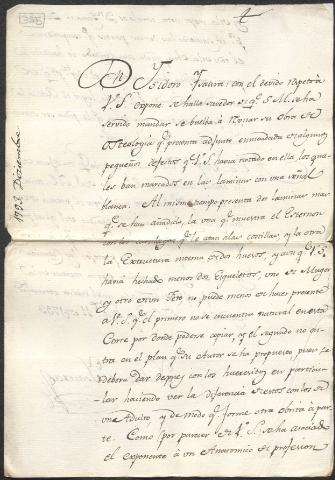 335
1788 Diciembre
Dn. Isidoro Isaura: con el devido respeto á
V. S. expone se halla sabedor de qe. S. M. se ha
servido mandar se buelba á revisar su Obra de
Osteologia qe. presenta adjunta enmendada de algunos
pequeños defectos qe. V. S. havia notado en ella, los qua-
les ban marcados en las laminas con una señal
blanca. Al mismo tiempo presenta dos laminas mas
qe. se han añadido, la una qe. muestra el Esternon
con los qe. le atan alas costillas, y la otra
la Extructura interna de los huesos, y aunqe. V. S.
havia hechado menos dos Esqueletos, uno de Muger
y otro de un Feto no puede menos de hacer presente
a V. S. qe. el primero no se encuentra natural en esta
Corte por donde poderse copiar, y el segundo no en-
tra en el plan qe. su Autor se ha propuesto pues se
debera dar despues con los huesecitos en particu-
lar haciendo ver la diferencia de estos con los de
un Adulto, y de modo qe. forme otra obrita á par-
te. Como (por parecer de V. S.) se ha asociado
el exponente á un Anatomico de profesion